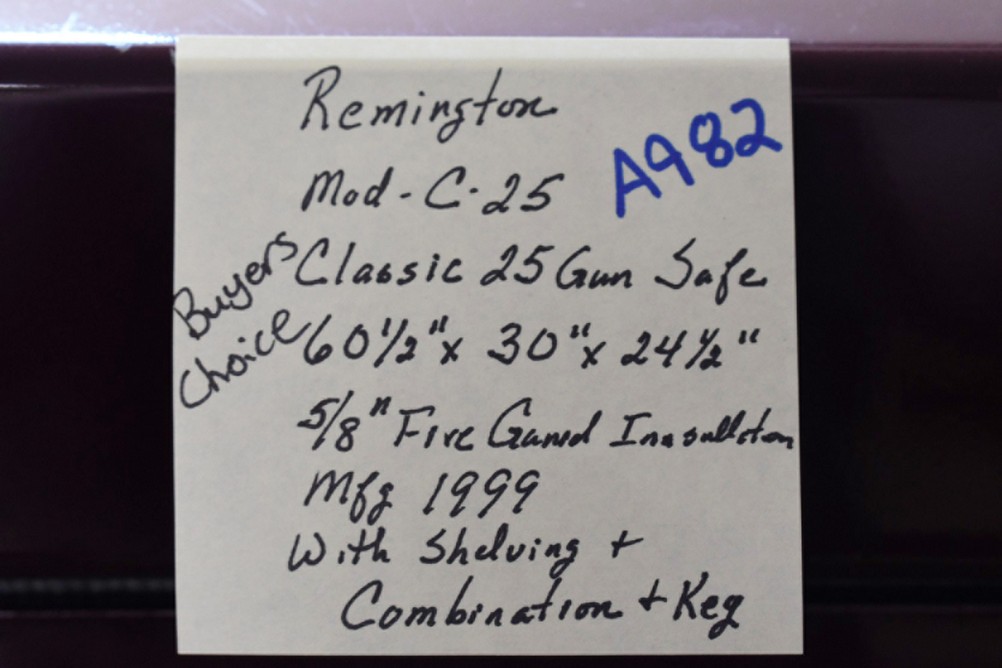 Remington
A982
Mod-C-25
Buyers
Choice
Classic 25 Gun Safe
60 1/2" x 30" x 24 1/2"
5/8" Fire Gaurd Insulltion
Mfg 1999
With Shelving +
Combination + Key